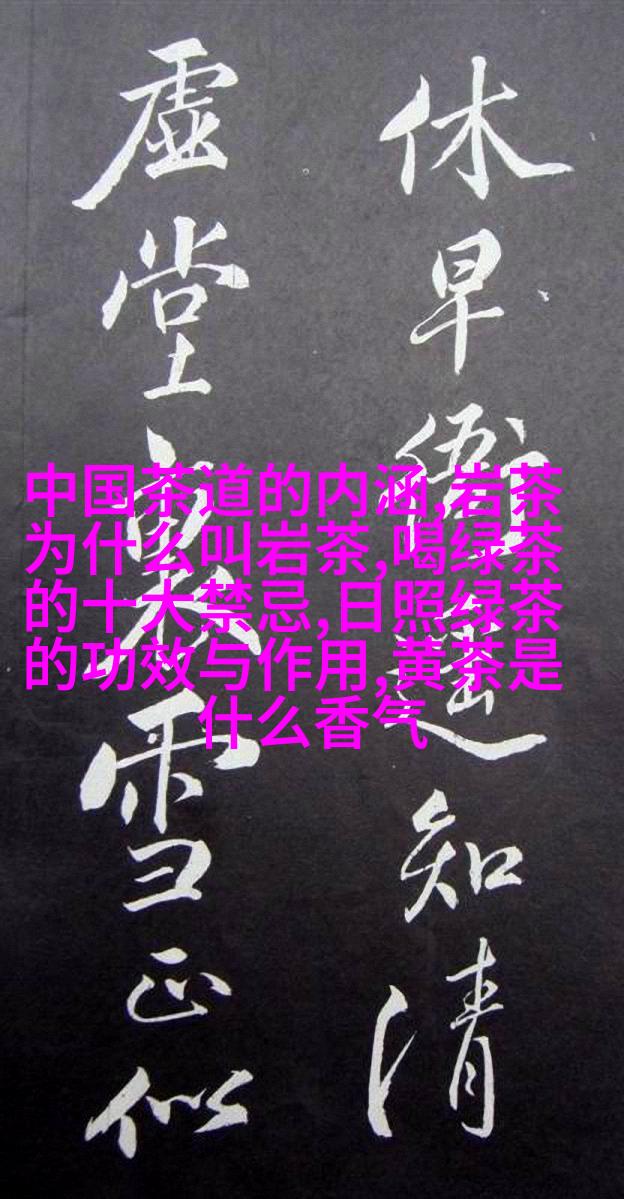 休早衙遥知清
虚堂裏雪正似
中国茶道的内涵,岩茶
为什么叫岩茶,喝绿茶
的十大禁忌,日照绿茶
的功效与作用,黄茶是
什么香气